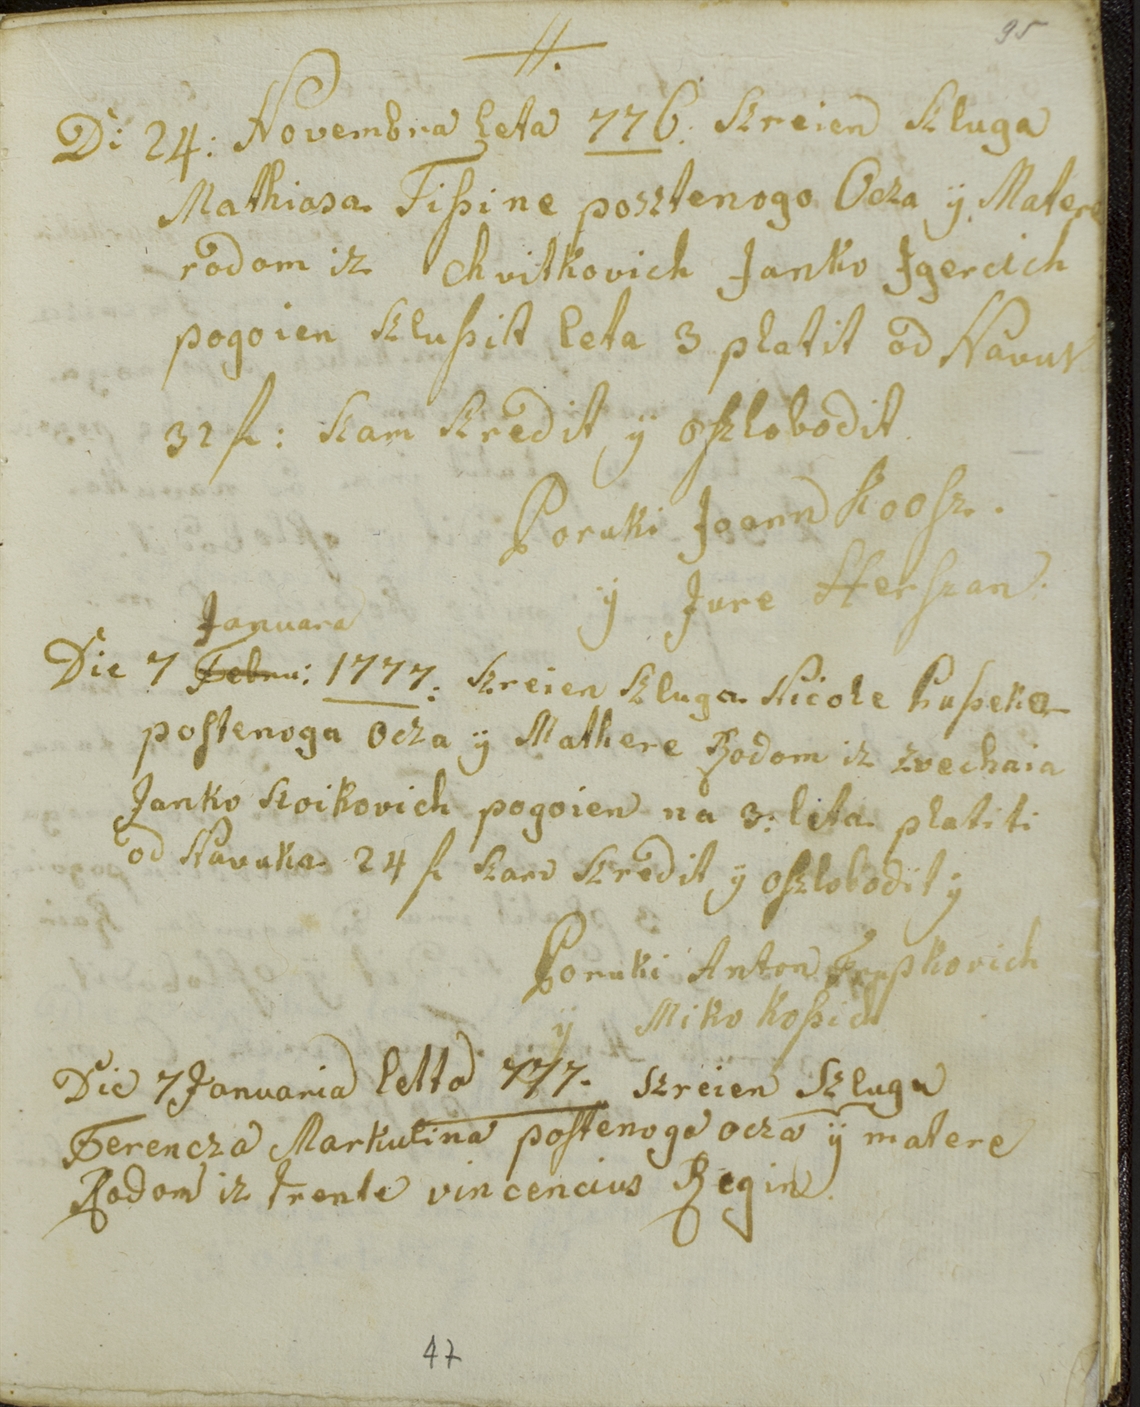 95
Di 24: Novembra Leta 776: Szreien Szluga
Mathiasa Fißine posztenogo Ocza ÿ Matere
rodom iz Chvitkovich Janko Jgercich
pogoien Szlußit leta 3 platit od Navuk
32 f: Szam Szredit ÿ oszlobodit
Poruki Joann Koosz.
ÿ Jure Herszan.
Januara
Die 7 Febru: 1777: Szreien Szluga Nicole Pußeka
postenoga Ocza ÿ Mathere Rodom iz zvechaia
Janko Stoikovich pogoien na 3: lita platiti
od Navuka 24 f Szam Szredit ÿ oszlobodit ÿ
Poruki Anton
ÿ Miko Koßich
Die 7 Januaria letta 777. Szreien Szluga
Ferencza Markulina postenoga ocza ÿ matere
Rodom iz trente vincencius Regin.
47